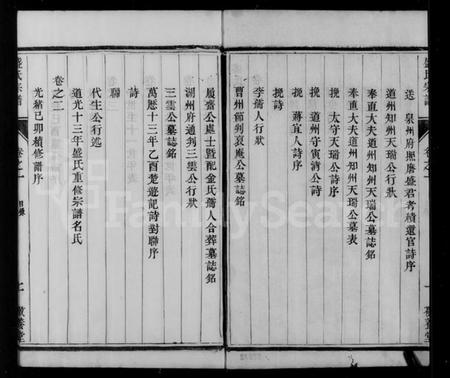 盛氏宗譜
卷之一
送 泉州府照磨盛君考績還官詩序
道州知州天瑞公行狀
奉直大夫道州知州天瑞公墓誌銘
奉直大夫道州知州天瑞公墓表
挽 太守天瑞公詩序
挽 道州守寅濟公詩
挽 蔣宜人詩序
挽詩
李孺人行狀
曹州節判哀庵公墓誌銘
履齋公處士暨配金氏孺人合葬墓誌銘
湖州府通判三雲公行狀
三雲公墓誌銘
萬曆十三年乙酉楚遊記詩對聯序
詩
聯
代生公行述
道光十三年盛氏重修宗譜名氏
卷之二
光緒己卯續修譜序
盛氏宗譜
卷之一
目錄
FamilySearch